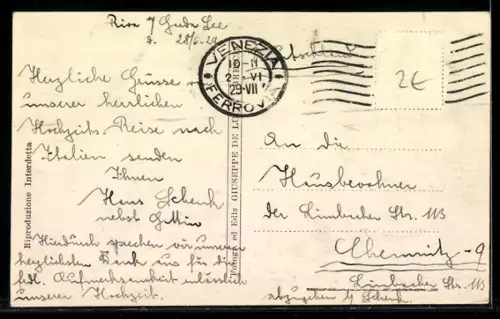 Riva / Garda See
d. 28/6.29
Deutschland
VENEZIA
FERROVIA
29-VII
2€
Herzliche Grüsse von
unserer herrlichen
Hochzeits Reise nach
Italien senden
Ihnen
Hans Schenk
nebst Gattin
Hierdurch sprechen wir unseren
herzlichsten Dank aus für die
frdl. Aufmerksamkeit anlässlich
unserer Hochzeit.
Riproduzione Interdetta
Fotogr. ed Ediz GIUSEPPE DE
An die
Hausbewohner
der Limbacher Str. 113
Chemnitz-9
Limbacher Str. 113
abzugeben b/ Schenk.